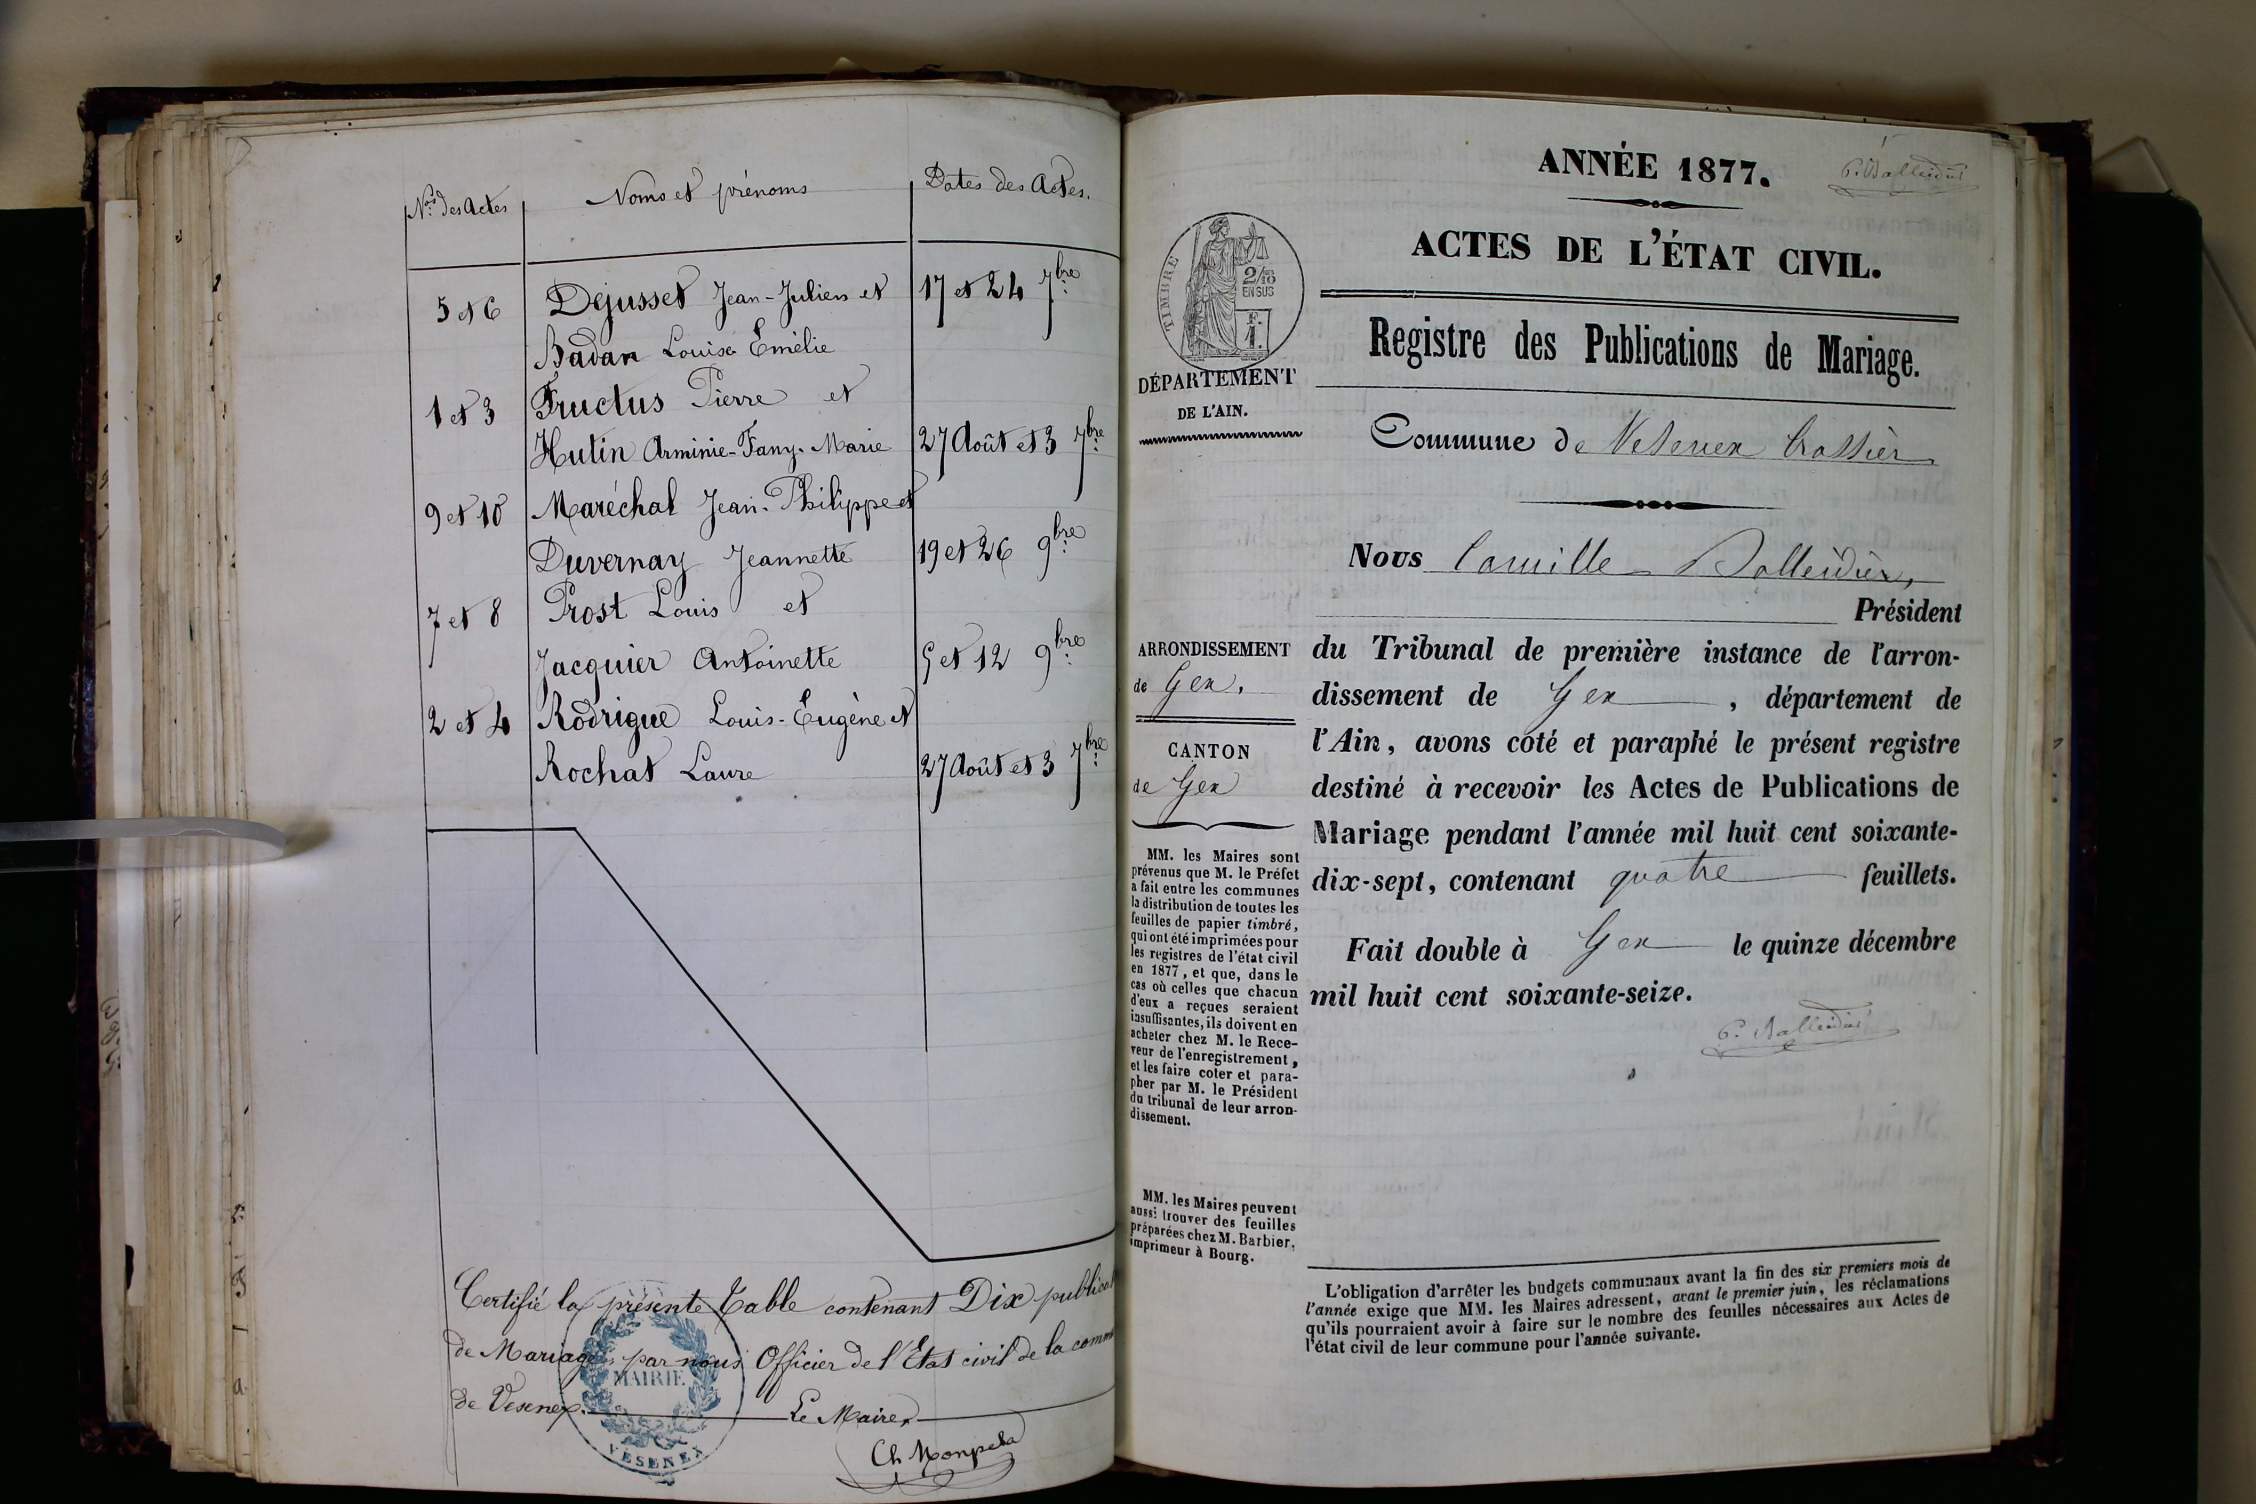 Nos des Actes
Noms et prénoms
Dates des Actes.
5 et 6 Dejusset Jean-Julien et 17 et 24 7bre
Badan Louise Emélie
1 et 3 Fructus Pierre et
Hutin Arminie-Fany-Marie 27 Août et 3 7bre
9 et 10 Maréchal Jean-Philippe et
Duvernay Jeannette 19 et 26 9bre
7 et 8 Prost Louis et
Jacquier Antoinette 5 et 12 9bre
2 et 4 Rodrigue Louis-Eugène et
Rochat Laure 27 Août et 3 7bre
Certifié la présente Table contenant Dix publicat
de Mariages par nous Officier de l'Etat civil de la comm
de Vesenex. Le Maire,
MAIRIE
VESENEX
Ch Monpela
ANNÉE 1877.
C. Balleidier
ACTES DE L'ÉTAT CIVIL.
TIMBRE
2/10
EN SUS
F.
1.
Registre des Publications de Mariage.
DÉPARTEMENT
DE L'AIN.
Commune de Vesenex Crassier
Nous Camille Balleidier,
Président
ARRONDISSEMENT
de Gex.
CANTON
de Gex
du Tribunal de première instance de l'arron-
dissement de Gex, département de
l'Ain, avons coté et paraphé le présent registre
destiné à recevoir les Actes de Publications de
Mariage pendant l'année mil huit cent soixante-
dix-sept, contenant quatre feuillets.
Fait double à Gex le quinze décembre
mil huit cent soixante-seize.
C. Balleidier
MM. les Maires sont
prévenus que M. le Préfet
a fait entre les communes
la distribution de toutes les
feuilles de papier timbré,
qui ont été imprimées pour
les registres de l'état civil
en 1877, et que, dans le
cas où celles que chacun
d'eux a reçues seraient
insuffisantes, ils doivent en
acheter chez M. le Rece-
veur de l'enregistrement,
et les faire coter et para-
pher par M. le Président
du tribunal de leur arron-
dissement.
MM. les Maires peuvent
aussi trouver des feuilles
préparées chez M. Barbier,
imprimeur à Bourg.
L'obligation d'arrêter les budgets communaux avant la fin des six premiers mois de
l'année exige que MM. les Maires adressent, avant le premier juin, les réclamations
qu'ils pourraient avoir à faire sur le nombre des feuilles nécessaires aux Actes de
l'état civil de leur commune pour l'année suivante.